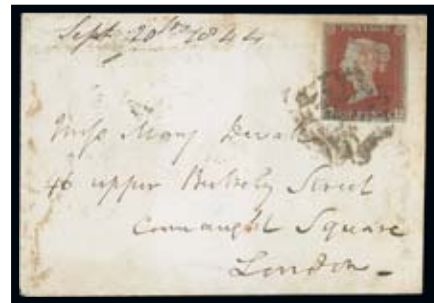 Sept 20th 1844
POSTAGE
Miss Mary
46 upper Berkeley Street
Connaught Square
London